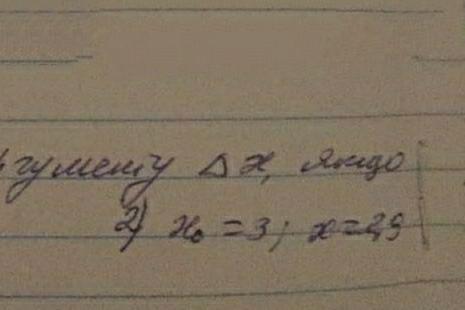 ргументу Δx, якщо
2) x₀ = 3; x = 2,9